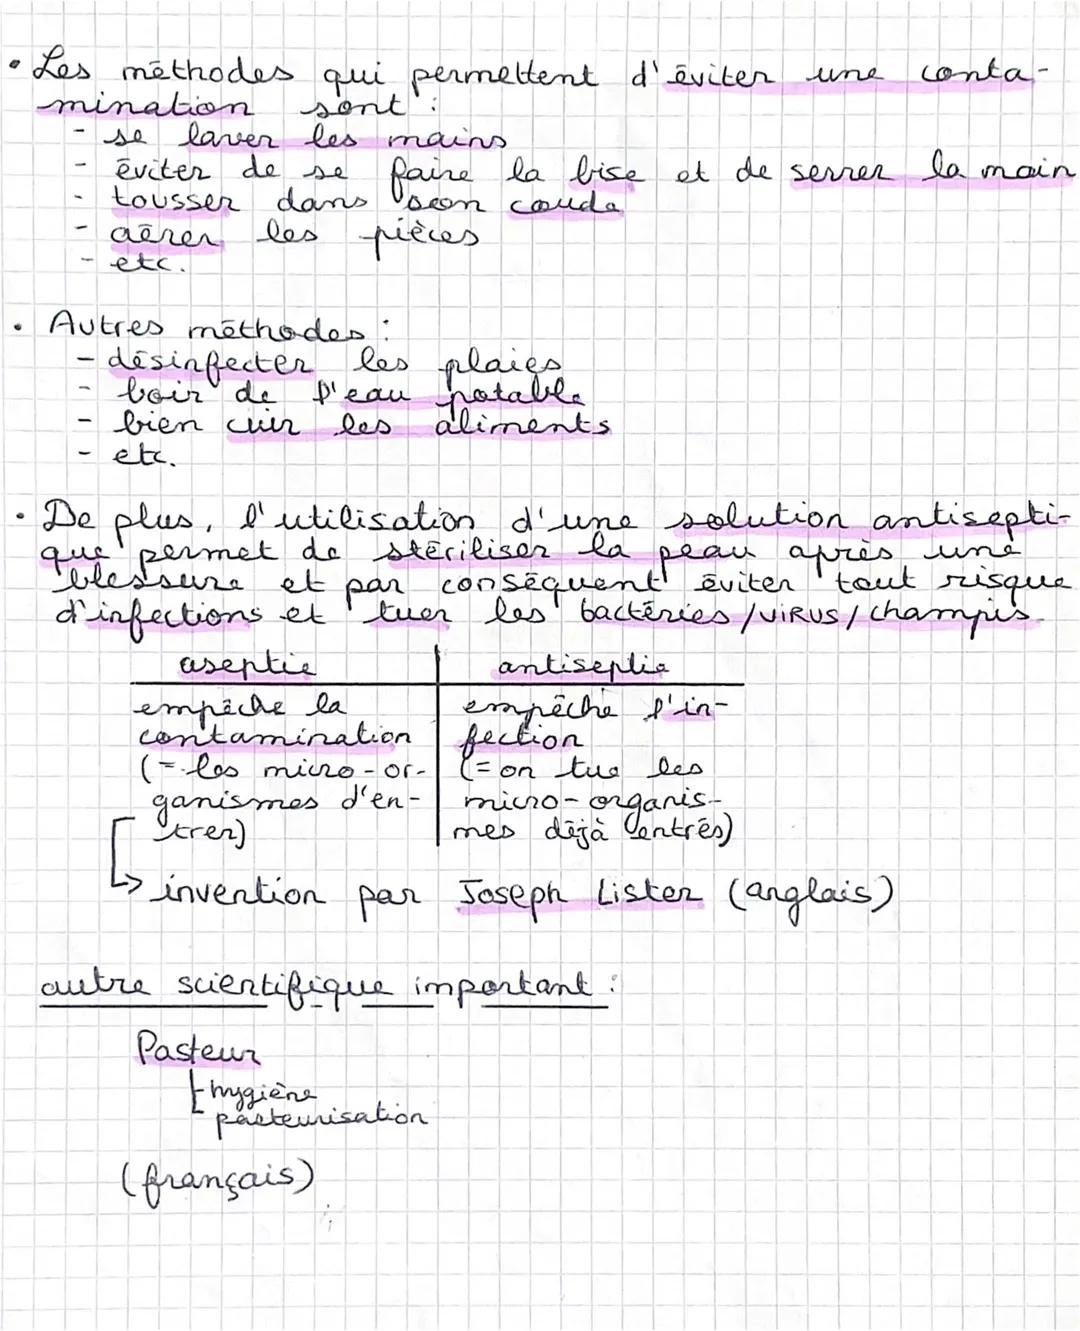 • Les méthodes qui permettent d'éviter une conta-
mination sont :
- se laver les mains
- éviter de se faire la bise et de serrer la main
- tousser dans son coude
- aérer les pièces
- etc.
• Autres méthodes :
- désinfecter les plaies
- boir de l'eau potable
- bien cuir les aliments
- etc.
• De plus, l'utilisation d'une solution antisepti-
que permet de stériliser la peau après une
blessure et par conséquent éviter tout risque
d'infections et tuer les bactéries/VIRUS/champis.
aseptie antiseptie
empêche la empêche l'in-
contamination fection
(= les micro-or- (= on tue les
ganismes d'en- micro-organis-
trer) mes déjà entrés)
↳ invention par Joseph Lister (anglais)
autre scientifique important :
Pasteur
hygiène
pasteurisation
(français)